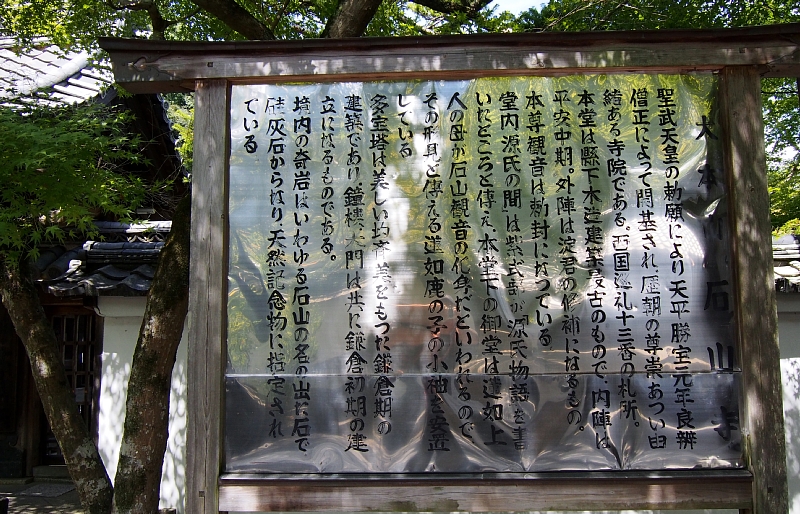 大本山石山寺
聖武天皇の勅願により天平勝宝元年良辨
僧正によって開基され、歴朝の尊崇あつい由
緒ある寺院である。西国巡礼十三番の札所。
本堂は縣下木造建築最古のもので、内陣は
平安中期。外陣は淀君の修補になるもの。
本尊観音は勅封になっている
堂内源氏の間は紫式部が源氏物語を書
いたところと傳え、本堂下の御堂は蓮如上
人の母が石山観音の化身だといわれるので、
その形見と傳える蓮如鹿の子の小袖を安置
している
多宝塔は美しい均斉美をもつた鎌倉期の
建築であり鐘楼、大門は共に鎌倉初期の建
立になるものである。
境内の奇岩はいわゆる石山の名の出た石で
硅灰石からなり、天然記念物に指定され
ている